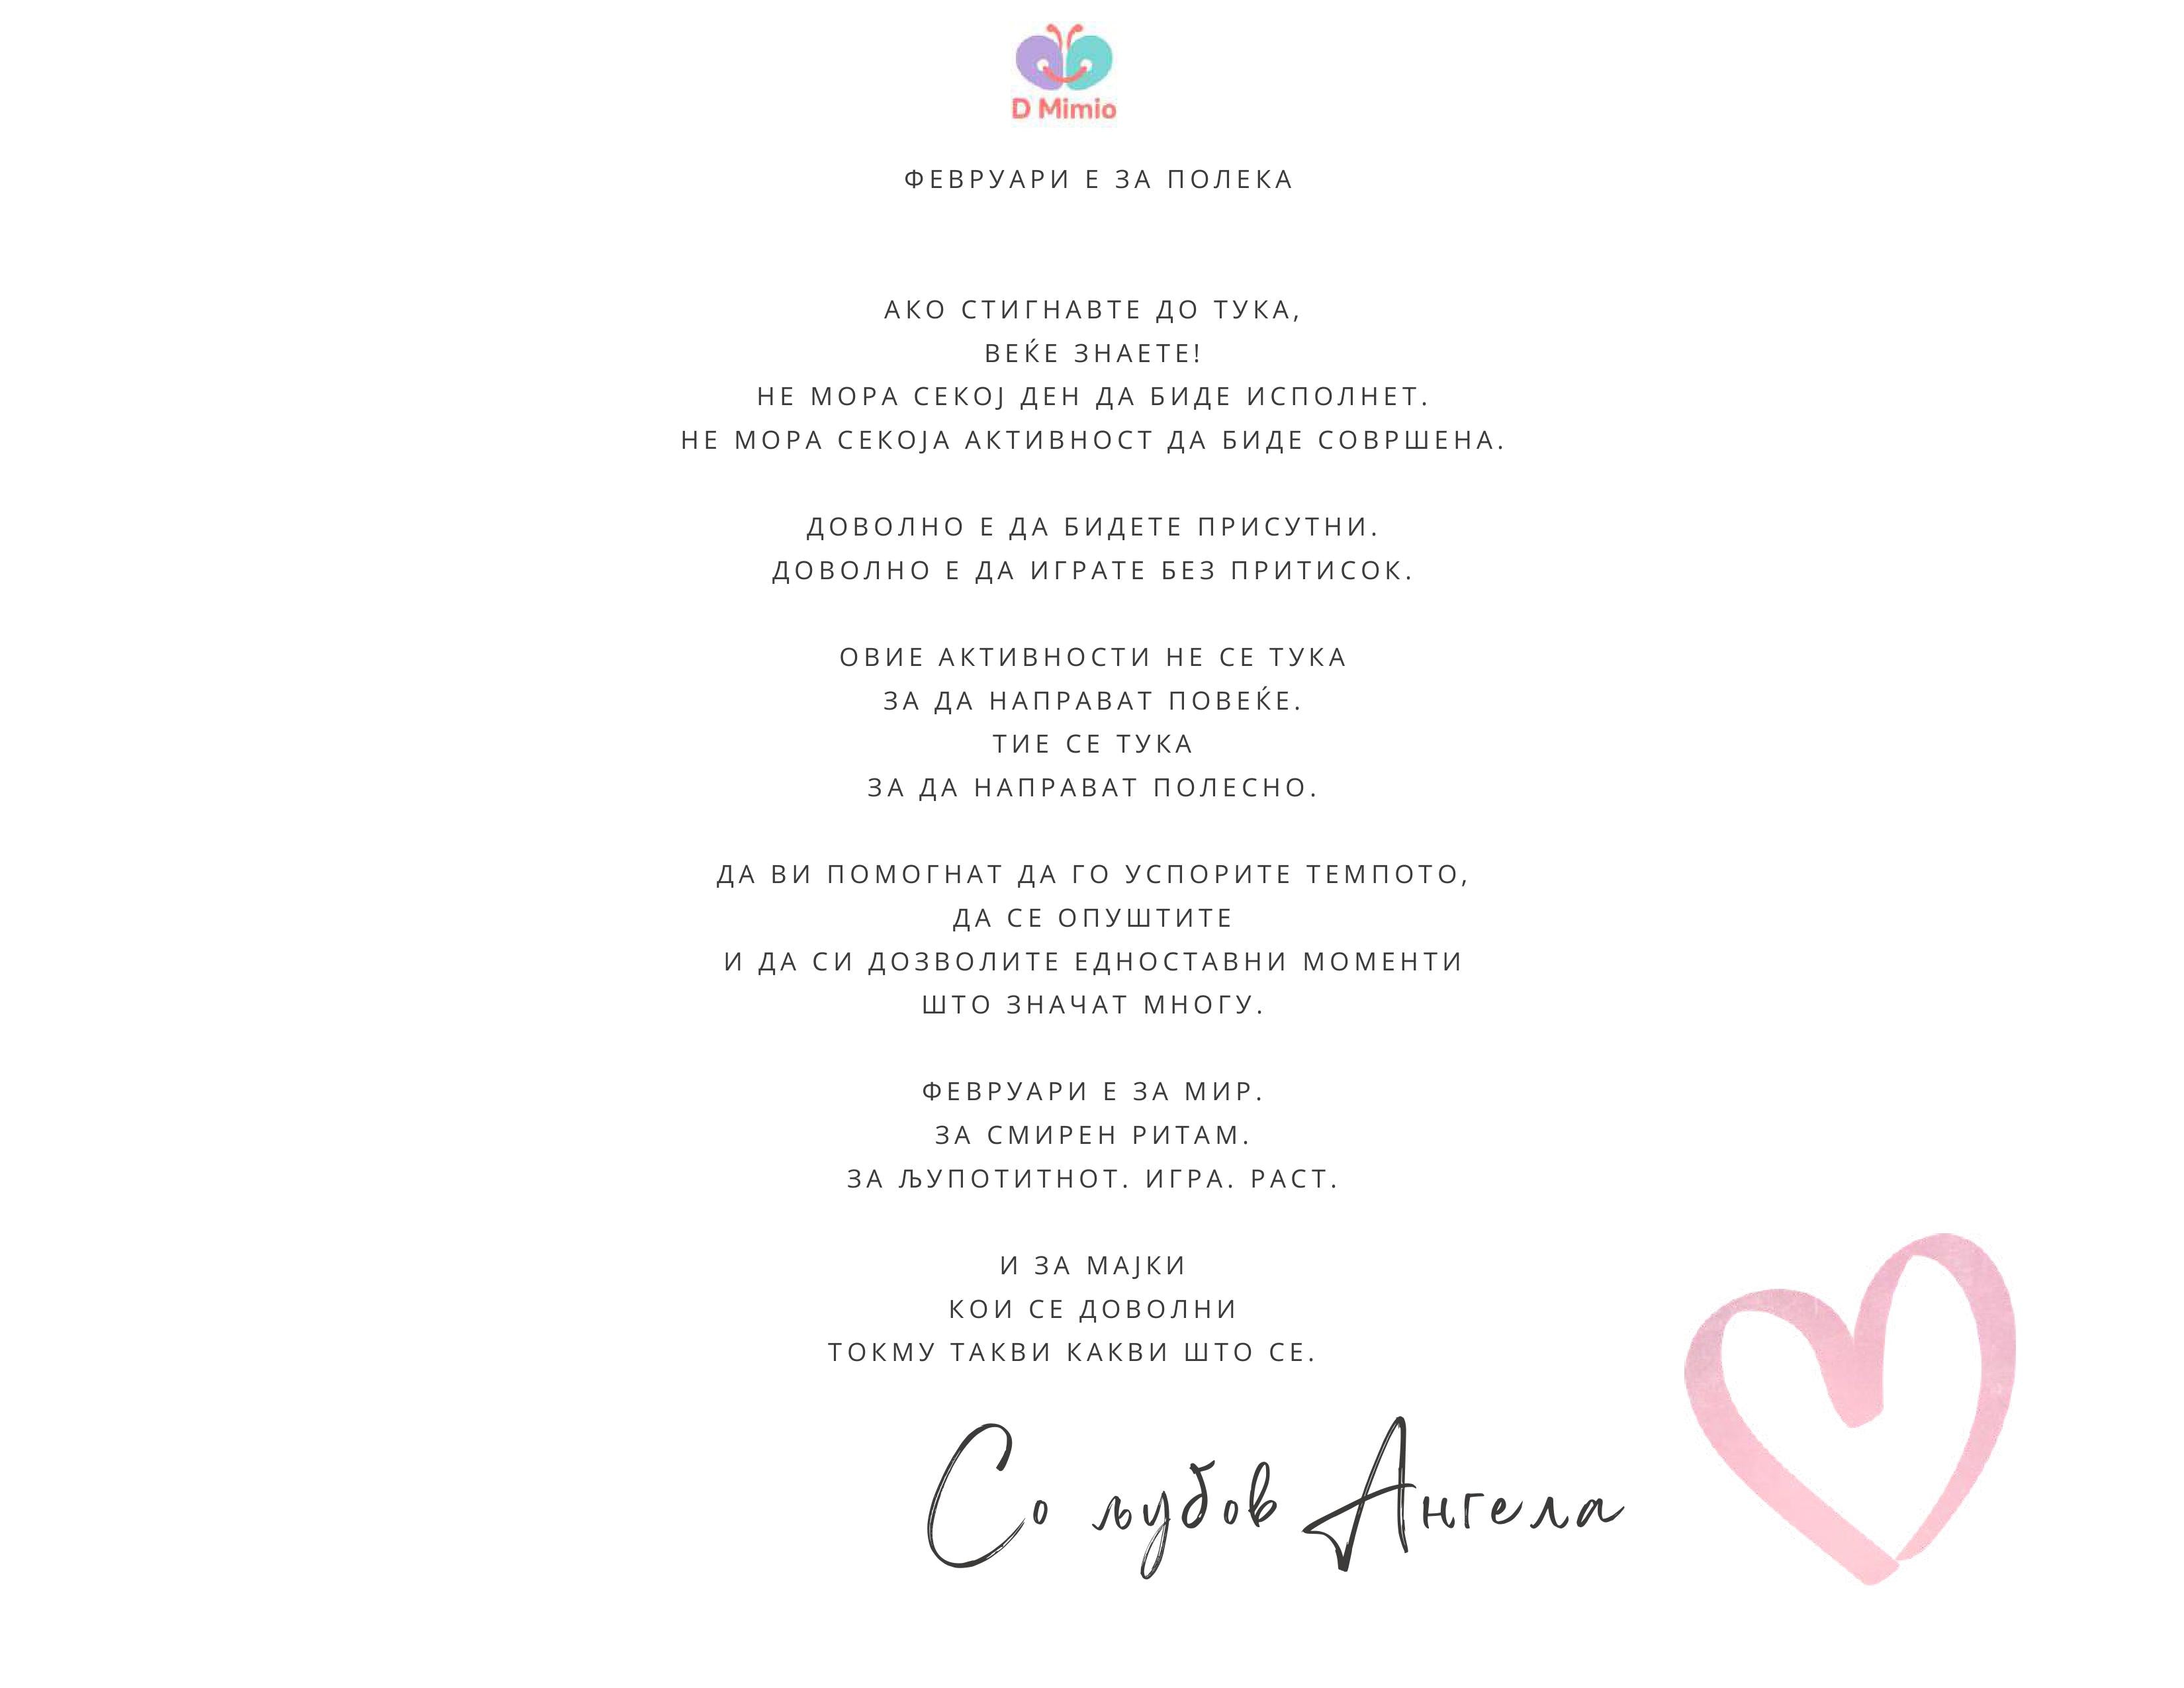 D Mimio
ФЕВРУАРИ Е ЗА ПОЛЕКА
АКО СТИГНАВТЕ ДО ТУКА,
ВЕЌЕ ЗНАЕТЕ!
НЕ МОРА СЕКОЈ ДЕН ДА БИДЕ ИСПОЛНЕТ.
НЕ МОРА СЕКОЈА АКТИВНОСТ ДА БИДЕ СОВРШЕНА.
ДОВОЛНО Е ДА БИДЕТЕ ПРИСУТНИ.
ДОВОЛНО Е ДА ИГРАТЕ БЕЗ ПРИТИСОК.
ОВИЕ АКТИВНОСТИ НЕ СЕ ТУКА
ЗА ДА НАПРАВАТ ПОВЕЌЕ.
ТИЕ СЕ ТУКА
ЗА ДА НАПРАВАТ ПОЛЕСНО.
ДА ВИ ПОМОГНАТ ДА ГО УСПОРИТЕ ТЕМПОТО,
ДА СЕ ОПУШТИТЕ
И ДА СИ ДОЗВОЛИТЕ ЕДНОСТАВНИ МОМЕНТИ
ШТО ЗНАЧАТ МНОГУ.
ФЕВРУАРИ Е ЗА МИР.
ЗА СМИРЕН РИТАМ.
ЗА ЉУПОТИТНОТ. ИГРА. РАСТ.
И ЗА МАЈКИ
КОИ СЕ ДОВОЛНИ
ТОКМУ ТАКВИ КАКВИ ШТО СЕ.
Со љубов Ангела